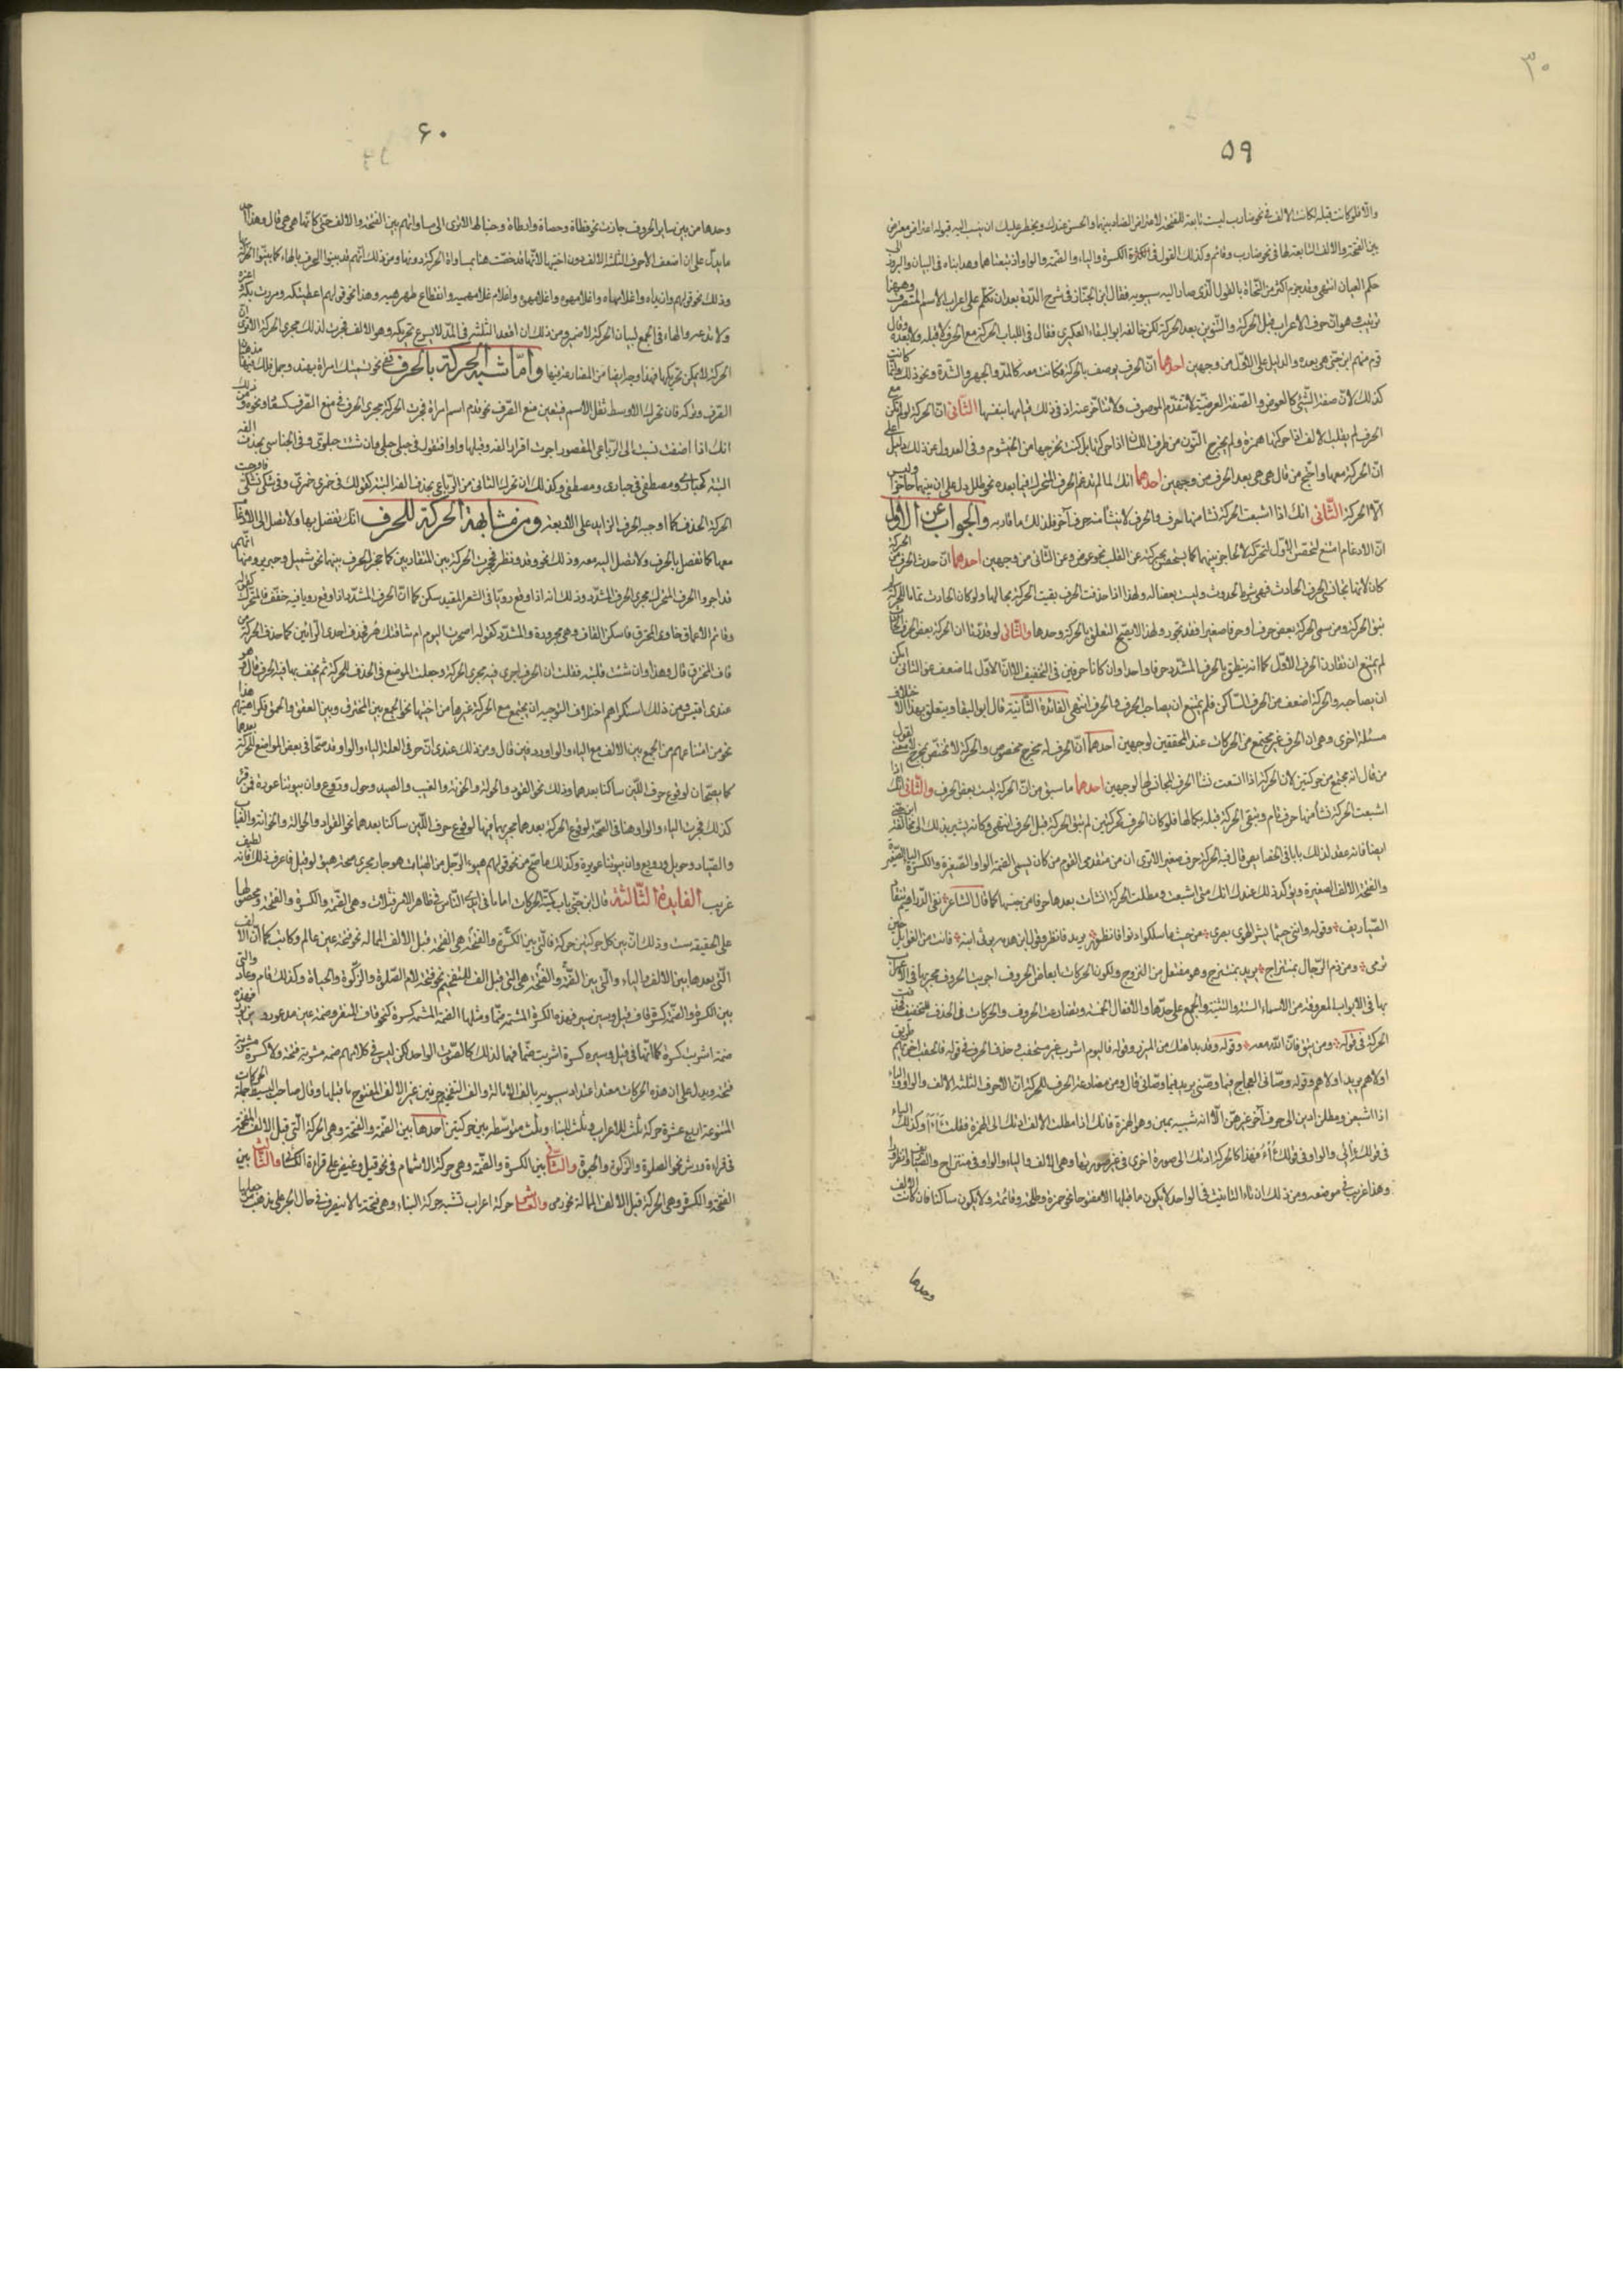 ٣٠
٥٩
والا فلو كانت قبله لكانت الالف فى نحو ضارب ليست تابعة للفتحة لاعتراض الضاد بينهما والحس عندك ويخطر عليك ان ينسب اليه قبوله اعتراض معترض
بين الفتحة والالف التابعة لها فى نحو ضارب وقائم وكذلك القول فى الكثرة الكسرة والياء والضمة والواو اذ تبعتاهما وهذا بناه فى البيان والبروز الى
حكم العيان انتهى وقد جزم اكثر من النحاة بالقول الذى صار اليه سيبويه فقال ابن الخباز فى شرح الدرة بعد ان تكلم على اعراب الاسم المتصرف وههنا
ترتيب وهو ان حرف الاعراب قبل الحركة والتنوين بعد الحركة لكن خالفه ابو البقاء العكبرى فقال فى اللباب الحركة مع الحرف لا قبله ولا بعده وقال
قوم منهم ابن جنى هى بعده والدليل على الاول من وجهين احدهما ان الحرف يوصف بالحركة فكانت معه كالمد والجهر والشدة ونحو ذلك وانما كانت
كذلك لان صفة الشئ كالعرض والصفة العرضية لا تتقدم الموصوف ولا تتاخر عنه اذ فى ذلك قيامها بنفسها الثانى ان الحركة لو لم تكن مع
الحرف لم يقلب الالف اذا حركتها همزة ولم يخرج النون من طرف اللسان اذا حركتها بل كنت تخرجها من الخيشوم وفى العدول عن ذلك دليل على
ان الحركة معها واحتج من قال هى بعد الحرف من وجهين احدهما انك لما لم تدغم الحرف المتحرك فيما بعده نحو طلل دل على ان بينهما حاجزا وليس
الا الحركة الثانى انك اذا اشبعت الحركة نشا منها الحرف والحرف لا ينشأ منه حرف آخر فلذلك ما قاربه والجواب عن الاول
ان الادغام امتنع لتحصن الاول لتحركه لا لحاجز بينهما كما يتحصن بحركته عن القلب نحو عوض وعن الثانى من وجهين احدهما ان حدث الحرف من الحركة
كان لانها تجانس الحرف الحادث فهى شرط لحدوثه وليست بعضا له ولهذا اذا حذفت الحرف بقيت الحركة بحالها ولو كان الحادث تماما للحركة لم
تبق الحركة ومن سمى الحركة بعض حرف او حرفا صغيرا فقد تجوز ولهذا لا يصح النطق بالحركة وحدها والثانى لو قدرنا ان الحركة بعض الحرف الحادث
لم يمتنع ان تقارن الحرف الاول كما انه ينطق بالحرف المشدد حرفا واحدا وان كانا حرفين فى التحقيق الا ان الاول لما ضعف عن الثانى امكن
ان يصاحبه والحركة اضعف من الحرف الساكن فلم يمتنع ان يصاحب الحرف والحرف انتهى الفائدة الثانية قال ابو البقا ويتعلق بهذا الاختلاف
مسئلة اخرى وهى ان الحرف غير مجتمع من الحركات عند المحققين لوجهين احدهما ان الحرف له مخرج مخصوص والحركة لا تختص بمخرج ولا معنى لقول
من قال انه مجتمع من حركتين لان الحركة اذا اشبعت نشا الحرف المجانس لها لوجهين احدهما ما سبق من ان الحركة ليست بعض الحرف والثانى انك اذا
اشبعت الحركة نشأ منها حرف تام وتبقى الحركة قبله بكمالها فلو كان الحرف حركتين لم تبق الحركة قبل الحرف انتهى وكانه يشير بذلك الى مخالفة ابن جنى
ايضا فانه عقد لذلك بابا فى الخصايص قال فيه الحركة حرف صغير الا ترى ان من متقدمى القوم من كان يسمى الضمة الواو الصغيرة والكسرة الياء الصغيرة
والفتحة الالف الصغيرة ويؤكد ذلك عندك انك متى اشبعت ومطلت الحركة انشات بعدها حرفا من جنسها كما قال الشاعر نفى الدراهيم تنقاد
الصياريف وقوله وانني حيثما يشرى الهوى بصرى من حيث ما سلكوا ادنوا فانظور يريد فانظر وقول ابن هرمة يرثى ابنه فانت من الغوايل حين
ترمى ومن ذم الرجال بمنتزاح يريد بمنتزح وهو مفتعل من النزوح ولكون الحركات ابعاض الحروف اجريت الحروف مجريها فى الاعراب
بها فى الابواب المعروفة من الاسماء الستة والتثنية والجمع على حدها والافعال الخمسة وتضارعت الحروف والحركات فى الحذف للتخفيف فحذفت
الحركة فى قوله ومن يتق فان الله معه وقوله وقد بدا هنك من المئزر وقوله فاليوم اشرب غير مستحقب وحذف الحرف فى قوله فالحقت اخراهم طريق
اولاهم يريد اولاهم وقوله وصانى العجاج فيما وصنى يريد فيما وصانى قال ومن مضارعة الحرف للحركة ان الاحرف الثلثة الالف والواو والياء
اذا اشبعن ومطلن ادين الى حرف آخر غيرهن الا انه شبيه بهن وهو الهمزة فانك اذا مطلت الالف ادتك الى الهمزة فقلت آء وكذلك الياء
فى قولك ئى والواو فى قولك ؤ فهذا كالحركة اذا ادتك الى صورة اخرى غير صورتها وهى الالف والياء والواو فى منتزاح والصياريف وانظور
وهذا غريب فى موضعه ومن ذلك ان تاء التانيث فى الواحد لا يكون ما قبلها الا مفتوحا نحو حمزة وطلحة وقائمة ولا يكون ساكنا فان كانت الالف
وحدها
٦٠
وحدها من بين ساير الحروف جازت نحو قطاة وحصاة وارطاة وحبنطاة الا ترى الى مساواتهم بين الفتحة والالف حتى كانها هى هى قال وهذا احد
ما يدل على ان اضعف الاحرف الثلثة الالف دون اختيها لانها قد خصت هنا بمساواة الحركة دونها ومن ذلك انهم قد بينوا الحرف بالهاء كما بينوا الحركة بها
وذلك نحو قولهم وازيداه واغلامهاه واغلامهوه واغلامهموه واغلام غلامهميه وانقطاع ظهرهيه وهذا نحو قولهم اعطيتكه ومررت بكه اغزه
ولا تدعه والهاء فى الجمع لبيان الحركة لا ضمير ومن ذلك ان اقعد الثلثة فى المد لا يسوغ تحريكه وهو الالف فجرت لذلك مجرى الحركة الا ترى ان
الحركة لا يمكن تحريكها فهذا وجه ايضا من المضارعة فيها واما شبه الحركة بالحرف ففى نحو تسميتك امراة بهند وجمل فلك فيهما مذهبان
الصرف وتركه فان تحرك الاوسط ثقل الاسم فتعين منع الصرف نحو قدم اسم امراة فجرت الحركة مجرى الحرف فى منع الصرف كسعاد ونحوه ومن ذلك
انك اذا اضفت نسبت الى الرباعى المقصور اجزت اقرار الفه وقلبها واوا فتقول فى حبلى حبلى وان شئت حبلوى وفى الخماسى بحذف الفه
البتة كحبارى ومصطفى فى حبارى ومصطفى وكذلك ان تحرك الثانى من الرباعى بحذف الفه البتة كقولك فى جمزى جمزى وفى بشكى بشكى فاوجبت
الحركة الحذف كما اوجبه الحرف الزايد على الاربعة ومن مشابهة الحركة للحرف انك تفصل بها ولا تصل الى الادغام
معها كما تفصل بالحرف ولا تصل اليه معه وذلك نحو وتد ونطر فحجزت الحركة بين المتقاربين كما حجز الحرف بينهما نحو شمليل وحبربر ومنها انهم
قد اجروا الحرف المتحرك مجرى الحرف المشدد وذلك انه اذا وقع رويا فى الشعر المقيد سكن كما ان الحرف المشدد اذا وقع رويا فيه خفف فالمتحرك كقوله
وقاتم الاعماق خاوى المخترق فاسكن القاف وهى مجرورة والمشدد كقوله اصحوت اليوم ام شاقتك هر فحذف احدى الرائين كما حذف الحركة من
قاف المخترق قال وهذا وان شئت قلبته فقلت ان الحرف اجرى فيه مجرى الحركة وجعلت الموضع فى الحذف للحركة ثم لحق بها فيه الحرف قال وهو
عندى اقيس ومن ذلك استكراههم اختلاف التوجيه ان يجمع مع الحركة غيرها من اختيها نحو الجمع بين المخترق وبين العقق والحمق فكراهيتهم هذا
نحو من امتناعهم من الجمع بين الالف مع الياء والواو ردفين قال ومن ذلك عندى ان حرفى العلة الياء والواو قد صحتا فى بعض المواضع للحركة بعدهما
كما يصحان لوقوع حرف اللين ساكنا بعدهما وذلك نحو القود والحوكة والخونة والغيب والصيد وحول وروع وان بيوتنا عورة فمن قرا
كذلك فجرت الياء والواو هنا فى الصحة لوقوع الحركة بعدهما مجريها فيهما لوقوع حرف اللين ساكنا بعدهما نحو القواد والحوالة والخوانة والغياب
والصياد وحويل ورويع وان بيوتنا عويرة وكذلك ما صح من نحو قولهم هيوء الرجل من الهيئات هو جار مجرى صحة هيوء لو قيل فاعرف ذلك فانه لطيف
غريب الفايدة الثالثة قال ابن جنى باب كمية الحركات اما ما فى ايدى الناس فى ظاهر الامر فثلاث وهى الضمة والكسرة والفتحة ومحصولها
على الحقيقة ست وذلك ان بين كل حركتين حركة فالتى بين الكسرة والفتحة هى الفتحة قبل الالف الممالة نحو فتحة عين عالم وكاتب كما ان الالف
التى بعدها بين الالف والياء والتى بين الضمة والفتحة هى التى قبل الف التفخيم نحو فتحة لام الصلوة والزكوة والحياة وكذلك قام وعاد والتى
بين الكسرة والضمة كسرة قاف قيل وسين سير فهذه الكسرة المشمة ضما ومثلها الضمة المشمة كسرة كنحو قاف المنقر وضمة عين مذعور فهذه
ضمة اشربت كسرة كما انها فى قيل وسير كسرة اشربت ضما فهما لذلك كالصوت الواحد لكن ليس فى كلامهم ضمة مشربة فتحة ولا كسرة مشربة
فتحة ويدل على ان هذه الحركات معتدا اعتداد سيبويه بالف الامالة والف التفخيم حرفين غير الالف المفتوح ما قبلها وقال صاحب البسيط جملة الحركات
المتنوعة اربع عشرة حركة ثلث للاعراب وثلث للبناء وثلث متوسطة بين حركتين احدها بين الضمة والفتحة وهى الحركة التى قبل الالف المفخمة
فى قراءة ورش نحو الصلوة والزكوة والحيوة والثانى بين الكسرة والضمة وهى حركة الاشمام فى نحو قيل وغيض على قراءة الكسائى والثالث بين
الفتحة والكسرة وهى الحركة قبل الالف الممالة نحو رمى والعاشر حركة اعراب تشبه حركة البناء وهى فتحة ما لا ينصرف فى حال الجر على مذهب من جعلها